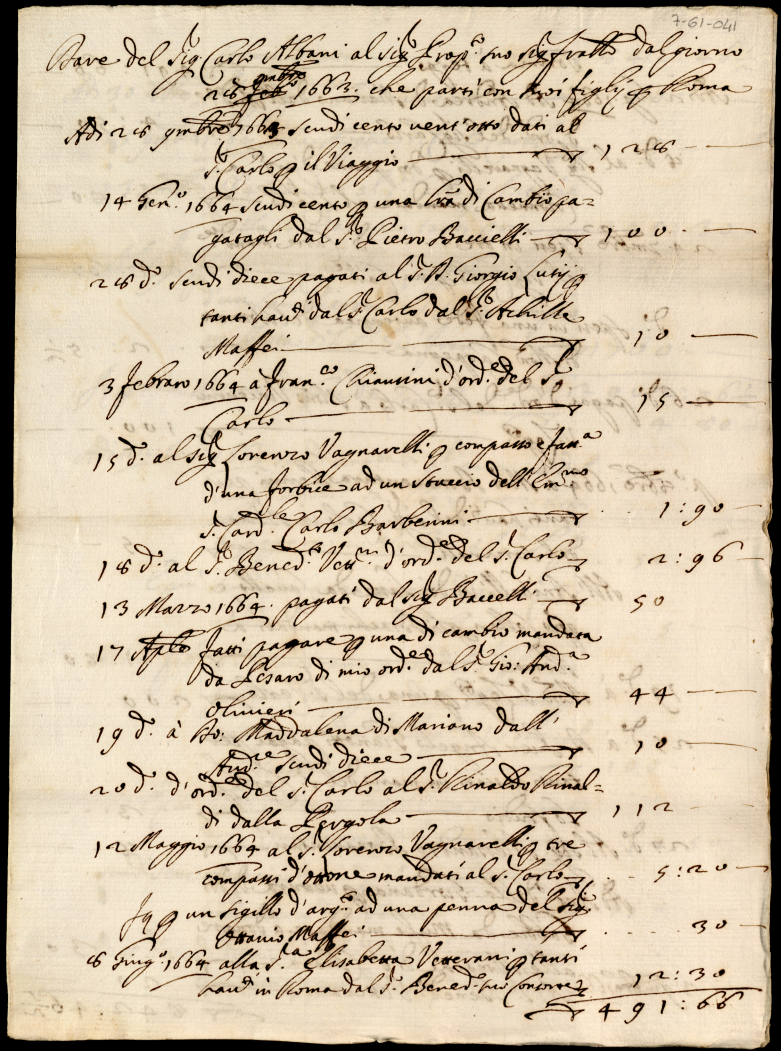 7-61-041
Dare del Sig.r Carlo Albani al Sig.r Prop.o suo Sig.r fratello dal giorno
28 9mbre 1663. che partì con suoi figlij p Roma
Adi 28 9mbre 1663 scudi cento vent'otto dati al
s.r Carlo p il Viaggio 128
14 Gen.o 1664 scudi cento p una lra di Cambio pa=
gatagli dal s.r Pietro Baccielli 100
28 d.o scudi diece pagati al s.r D. Giorgio Lutij p
tanti hauti dal s.r Carlo dal s.r Achille
Maffei 10
3 febraro 1664 à Fran.co Chiausini d'ord.e del s.r
Carlo 15
15 d.o al Sig.r Lorenzo Vagnarelli p compasso e fatt.a
d'una forbice ad un stuccio dell'Em.mo
s. Card.le Carlo Barberini 1:90
18 d.o al s.r Bened.o Vett.ni d'ord.e del s.r Carlo 2:96
13 Marzo 1664. pagati dal Sig.r Baccelli 50
17 Aple fatti pagare p una di cambio mandata
da Pesaro di mio ord.e dal s.r Gio: And.a
Olivieri 44
19 d.o à Madalena di Mariano dall'
And.e scudi diece 10
20 d.o d'ord.e del s. Carlo al s.r Rinaldo Rinal=
di dalla Pergola 112
12 Maggio 1664 al s.r Lorenzo Vagnarelli p tre
compassi d'ottone mandati al s.r Carlo 5:20
p un sigillo d'arg.o ad una penna del Sig.r
Ottavio Maffei 30
8 Giug.o 1664 alla s.ra Elisabetta Vetterani p tanti
hauti in Roma dal s.r Bened.o suo Consorte 12:30
491:66